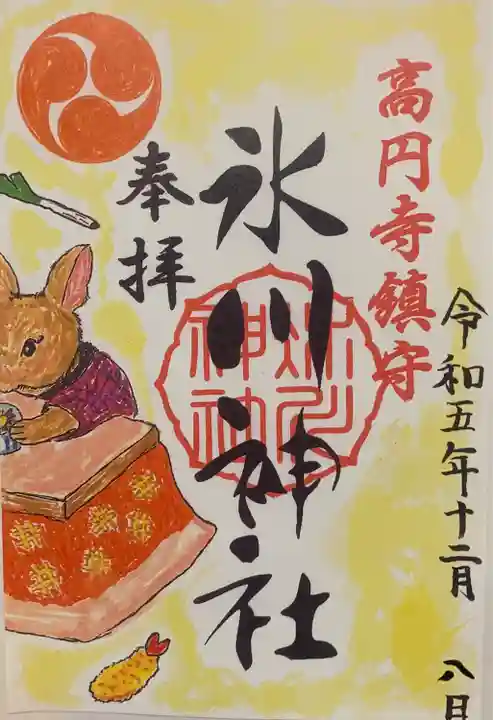 高円寺鎮守
令和五年十二月 八日
氷川神社
奉拝
氷川
神社